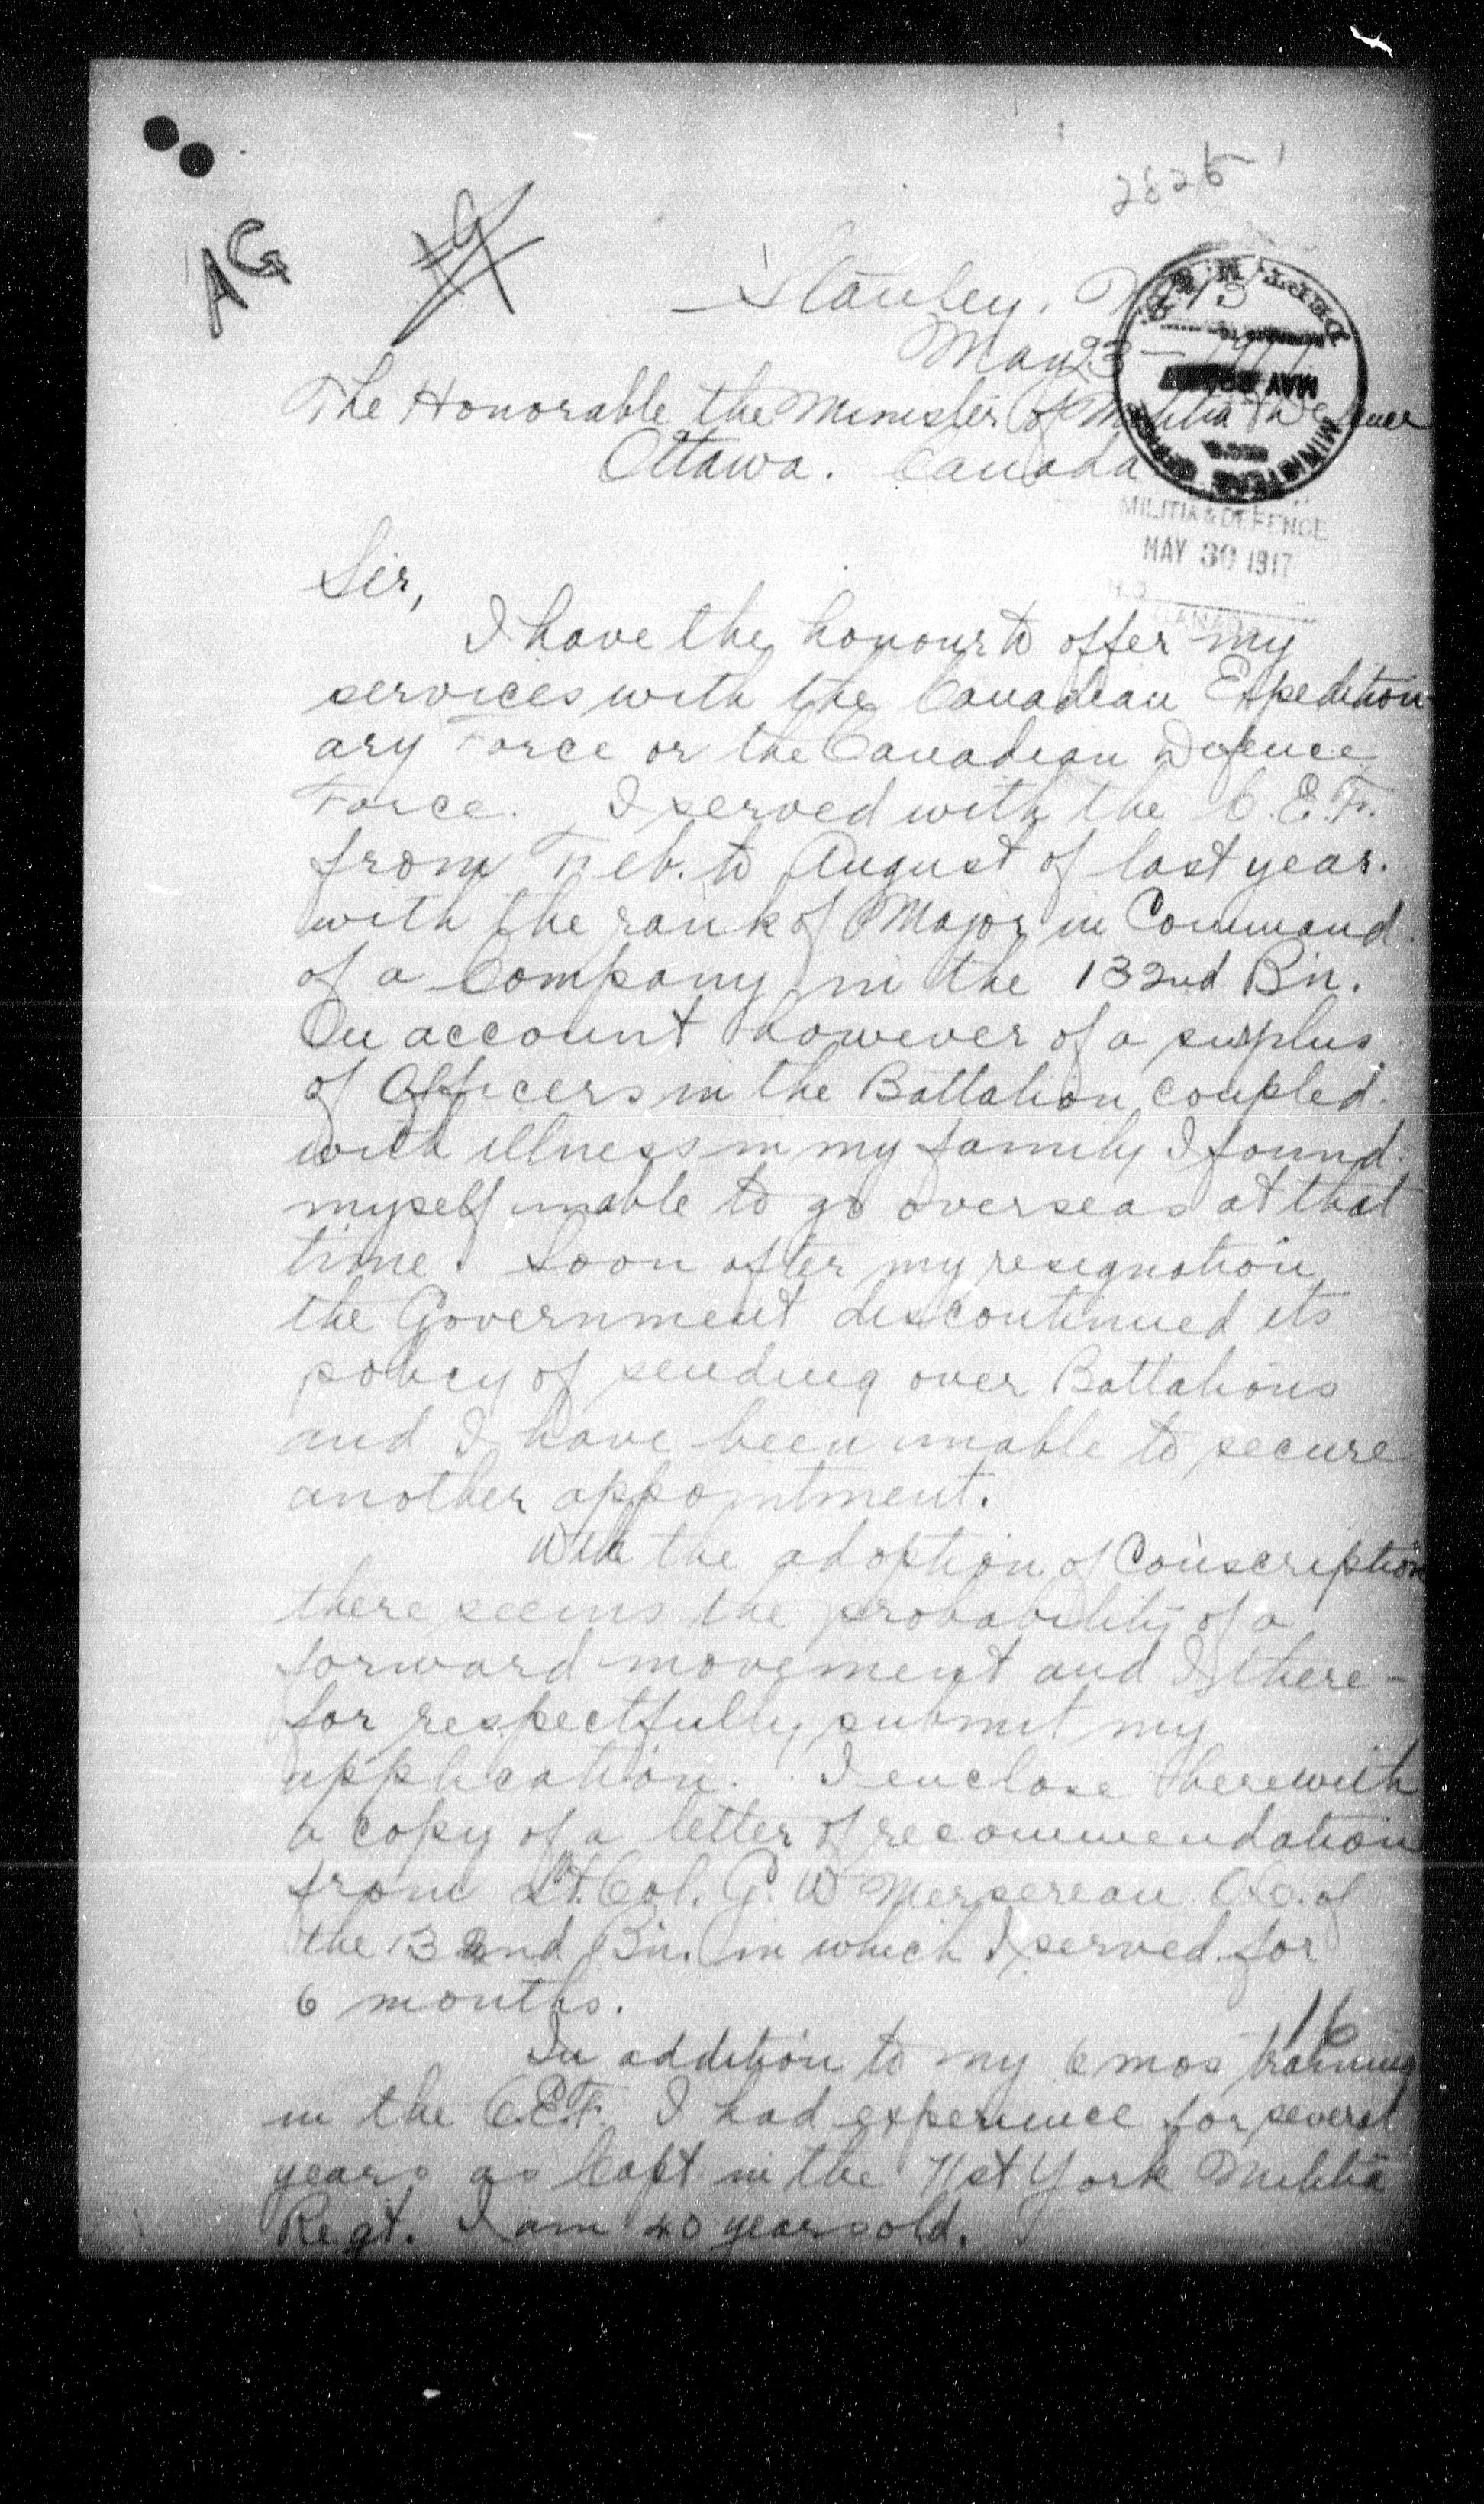 2825
AG
Stanley, N.B.
May 23 - 1917
The Honorable the Minister of Militia & Defence
Ottawa. Canada
DEPT. M. & D.
MAY
MINISTERS OFFICE
MILITIA & DEFENCE
MAY 30 1917
CANADA
Sir,
I have the honour to offer my
services with the Canadian Expedition-
ary Force or the Canadian Defence
Force. I served with the C.E.F.
from Feb. to August of last year.
with the rank of Major in Command
of a Company in the 132nd Bn.
On account however of a surplus
of Officers in the Battalion coupled
with illness in my family I found
myself unable to go overseas at that
time. Soon after my resignation
the Government discontinued its
policy of sending over Battalions
and I have been unable to secure
another appointment.
With the adoption of Conscription
there seems the probability of a
forward movement and I there-
for respectfully submit my
application. I enclose herewith
a copy of a letter of recommendation
from Lt. Col. G. W. Mersereau O.C. of
the 132nd Bn. in which I served for
6 months.
16
In addition to my 6 mos training
in the C.E.F. I had experience for several
years as Capt in the 71st York Militia
Regt. I am 40 years old.